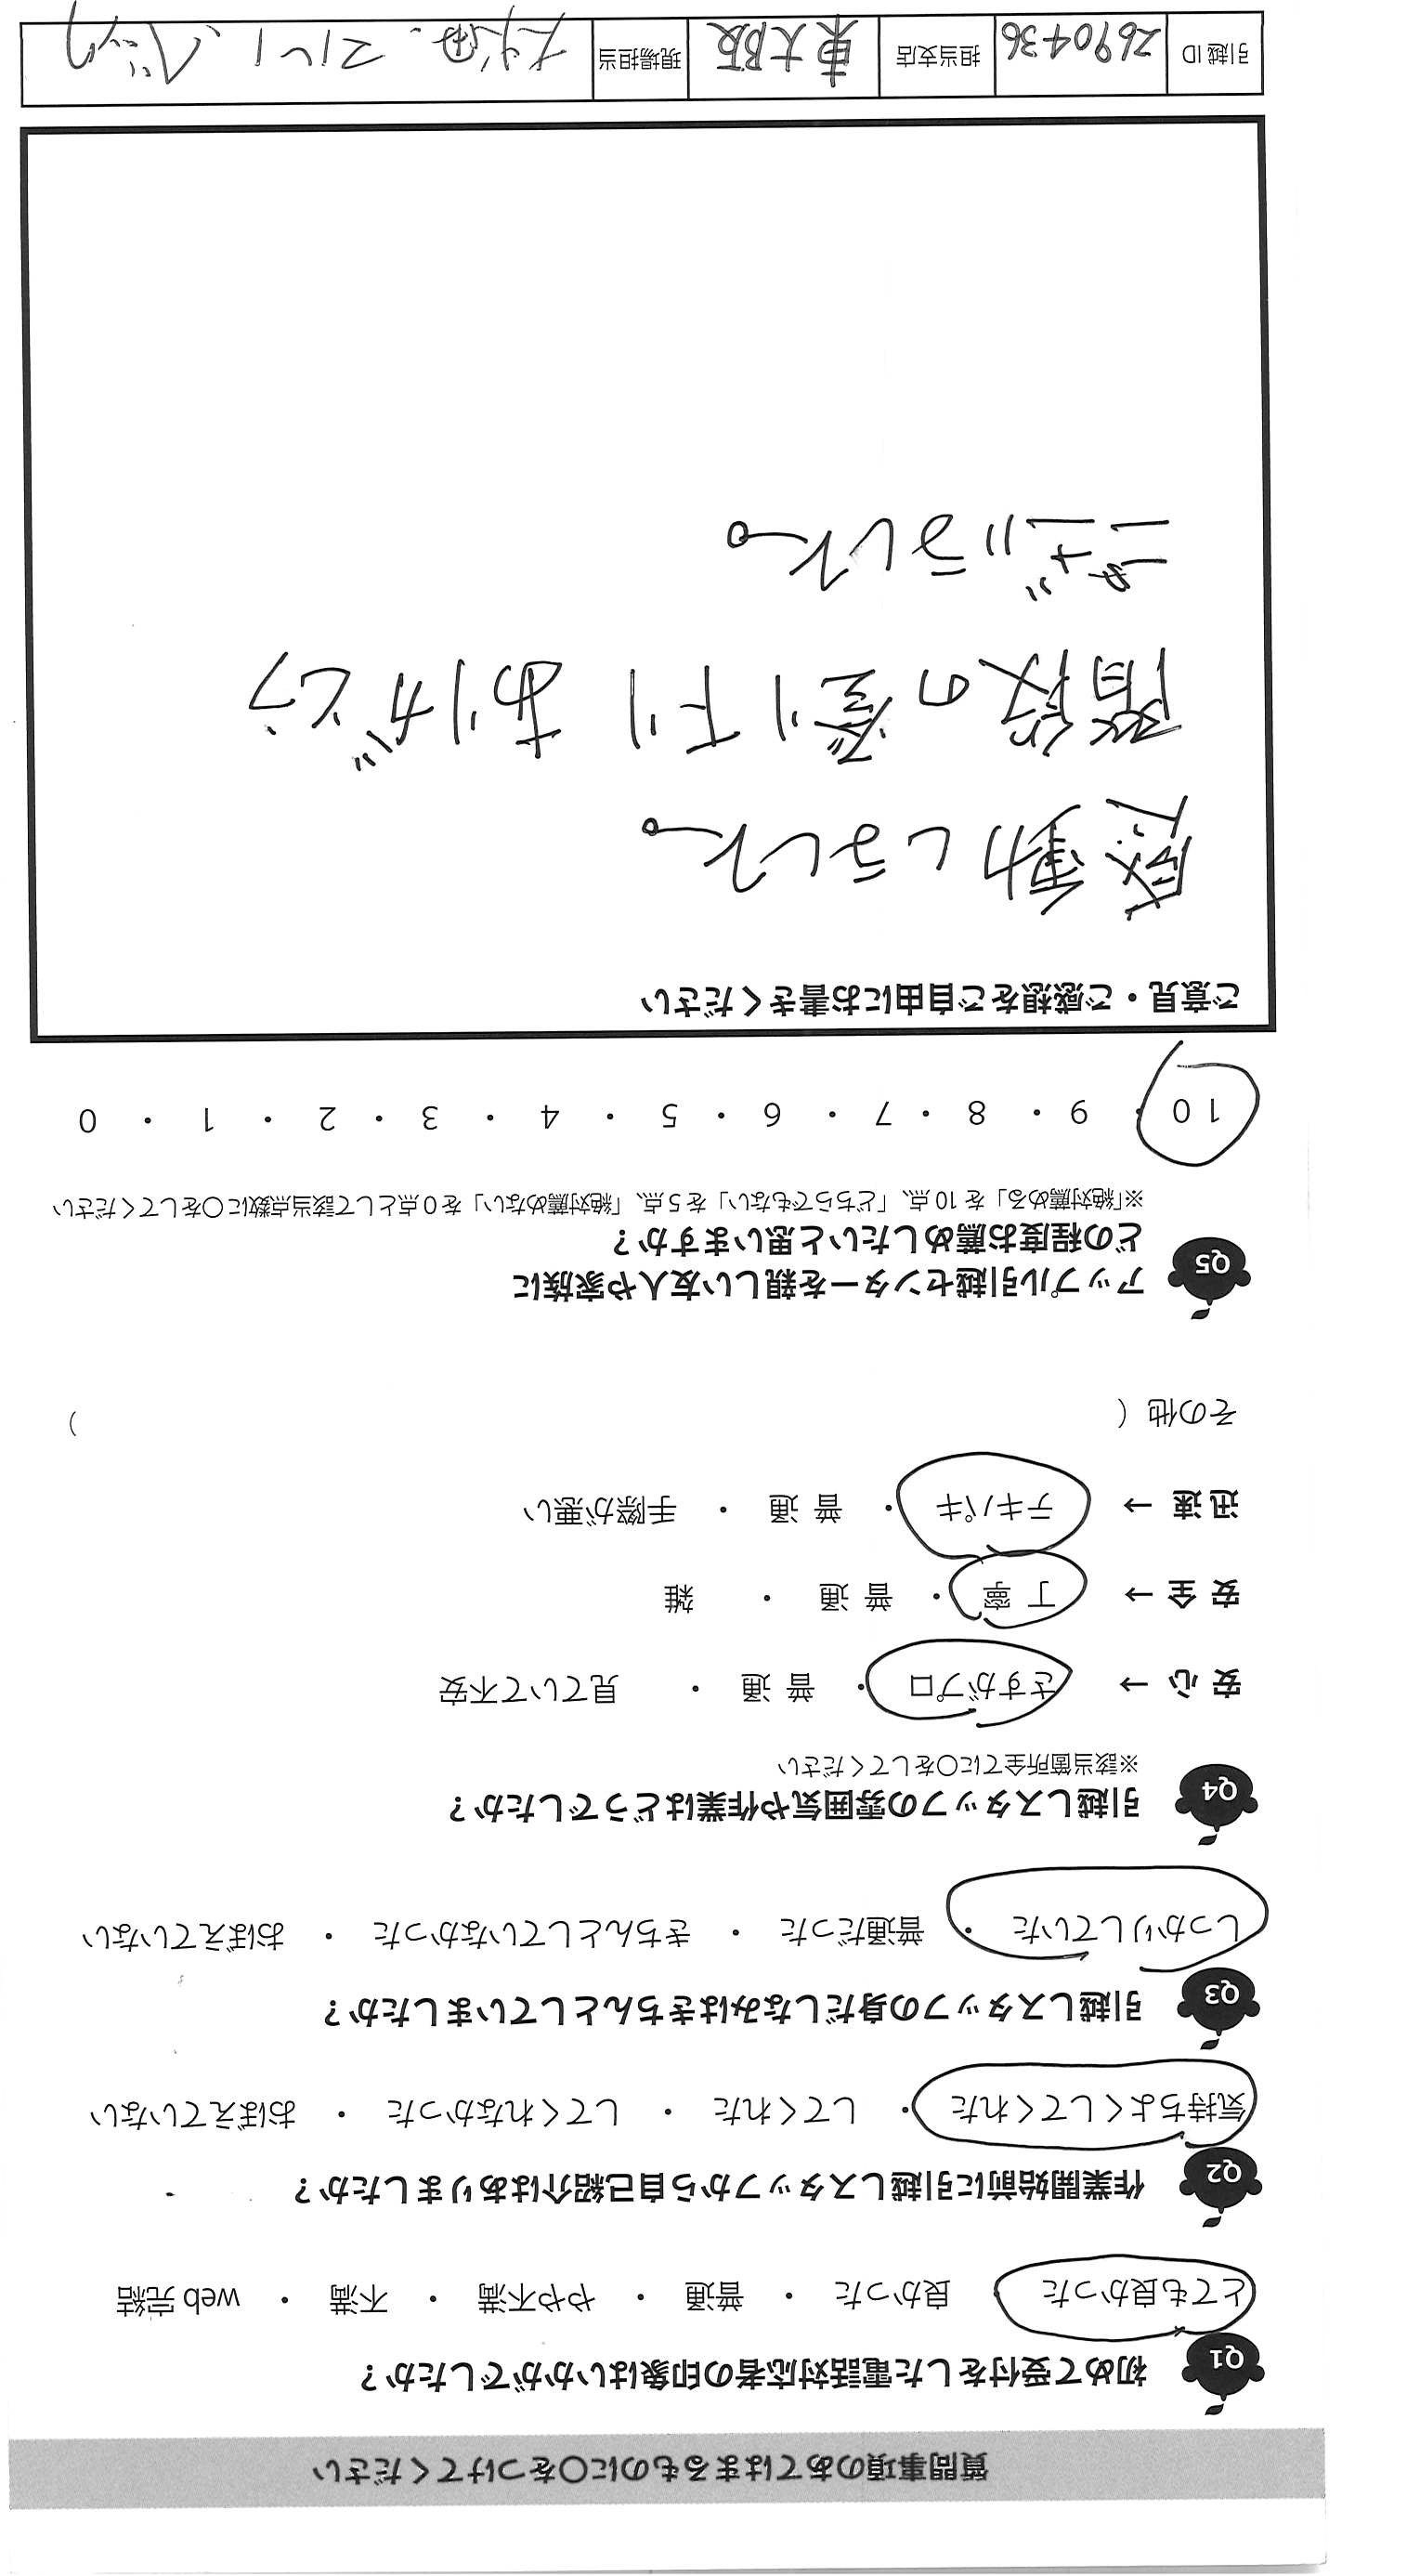 質問事項のあてはまるものに〇をつけてください
Q1 初めて受付をした電話対応者の印象はいかがでしたか？
とても良かった ・ 良かった ・ 普通 ・ やや不満 ・ 不満 ・ web 完結
Q2 作業開始前に引越しスタッフから自己紹介はありましたか？
気持ちよくしてくれた ・ してくれた ・ してくれなかった ・ おぼえていない
Q3 引越しスタッフの身だしなみはきちんとしていましたか？
しっかりしていた ・ 普通だった ・ きちんとしていなかった ・ おぼえていない
Q4 引越しスタッフの雰囲気や作業はどうでしたか？
※該当箇所全てに〇をしてください
安 心 → さすがプロ ・ 普 通 ・ 見ていて不安
安 全 → 丁 寧 ・ 普 通 ・ 雑
迅 速 → テキパキ ・ 普 通 ・ 手際が悪い
その他（ ）
Q5 アップル引越センターを親しい友人や家族に
どの程度お薦めしたいと思いますか？
※「絶対薦める」を 10 点、「どちらでもない」を 5 点、「絶対薦めない」を 0 点として該当点数に〇をしてください
10 ・ 9 ・ 8 ・ 7 ・ 6 ・ 5 ・ 4 ・ 3 ・ 2 ・ 1 ・ 0
ご意見・ご感想をご自由にお書きください
感動しました。
階段の登り下り ありがとう
ございました。
引越 ID 2690436 担当支店 東大阪 現場担当